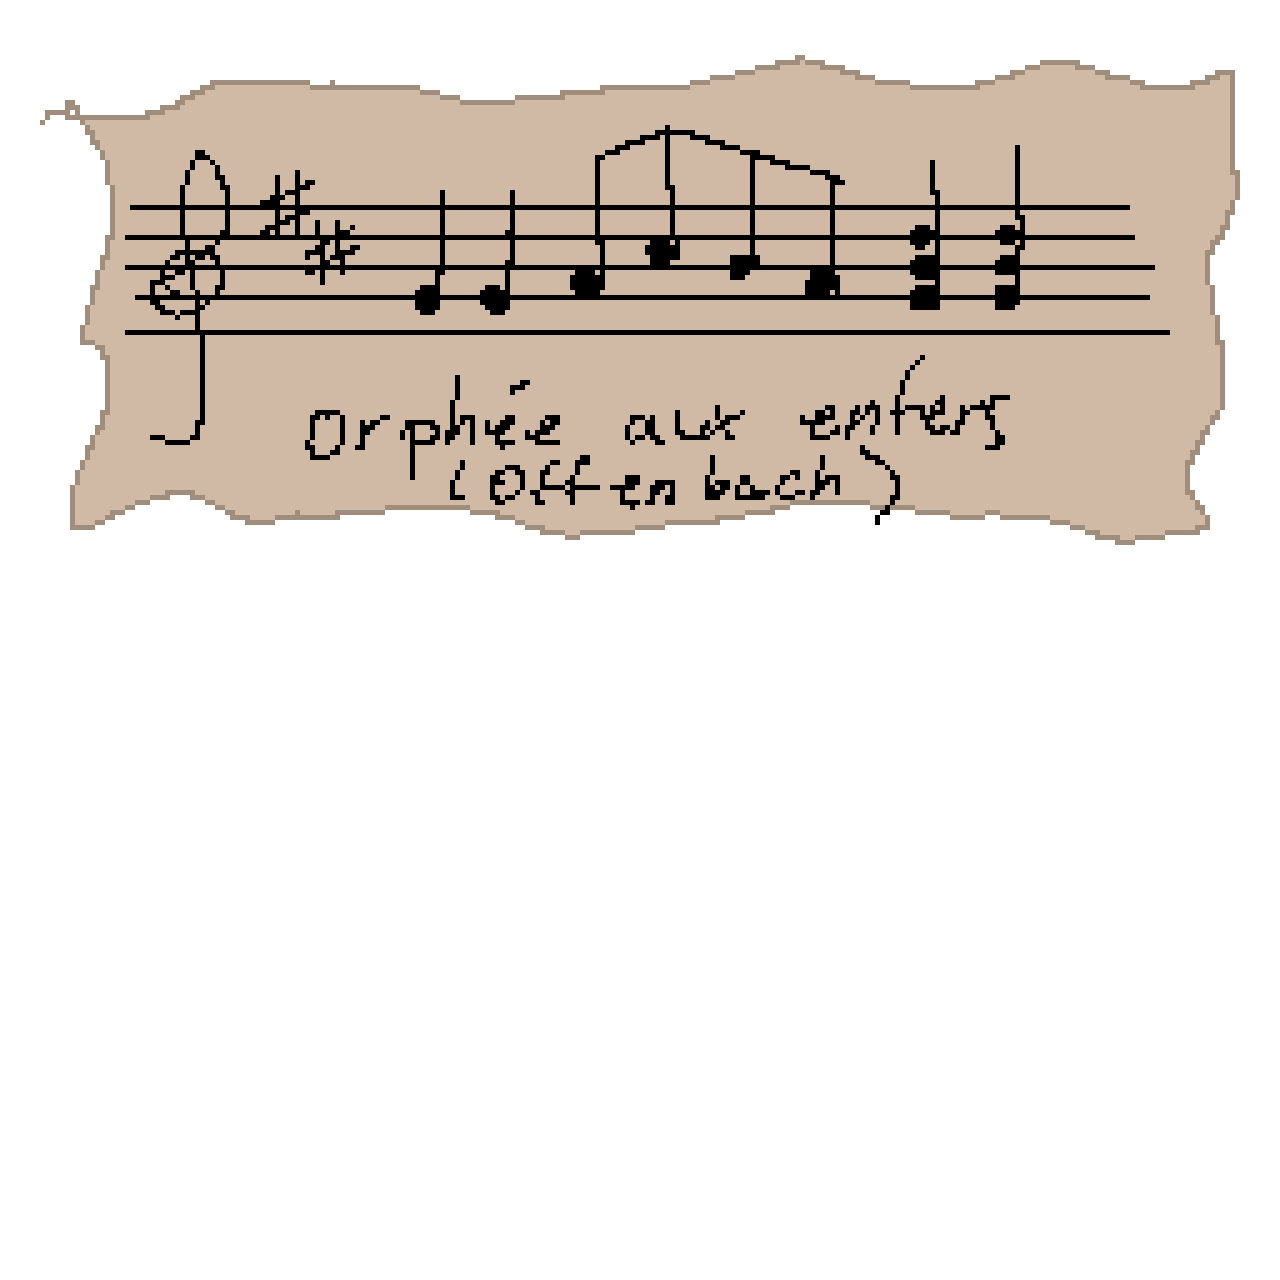 Orphée aux enfers
(Offenbach)